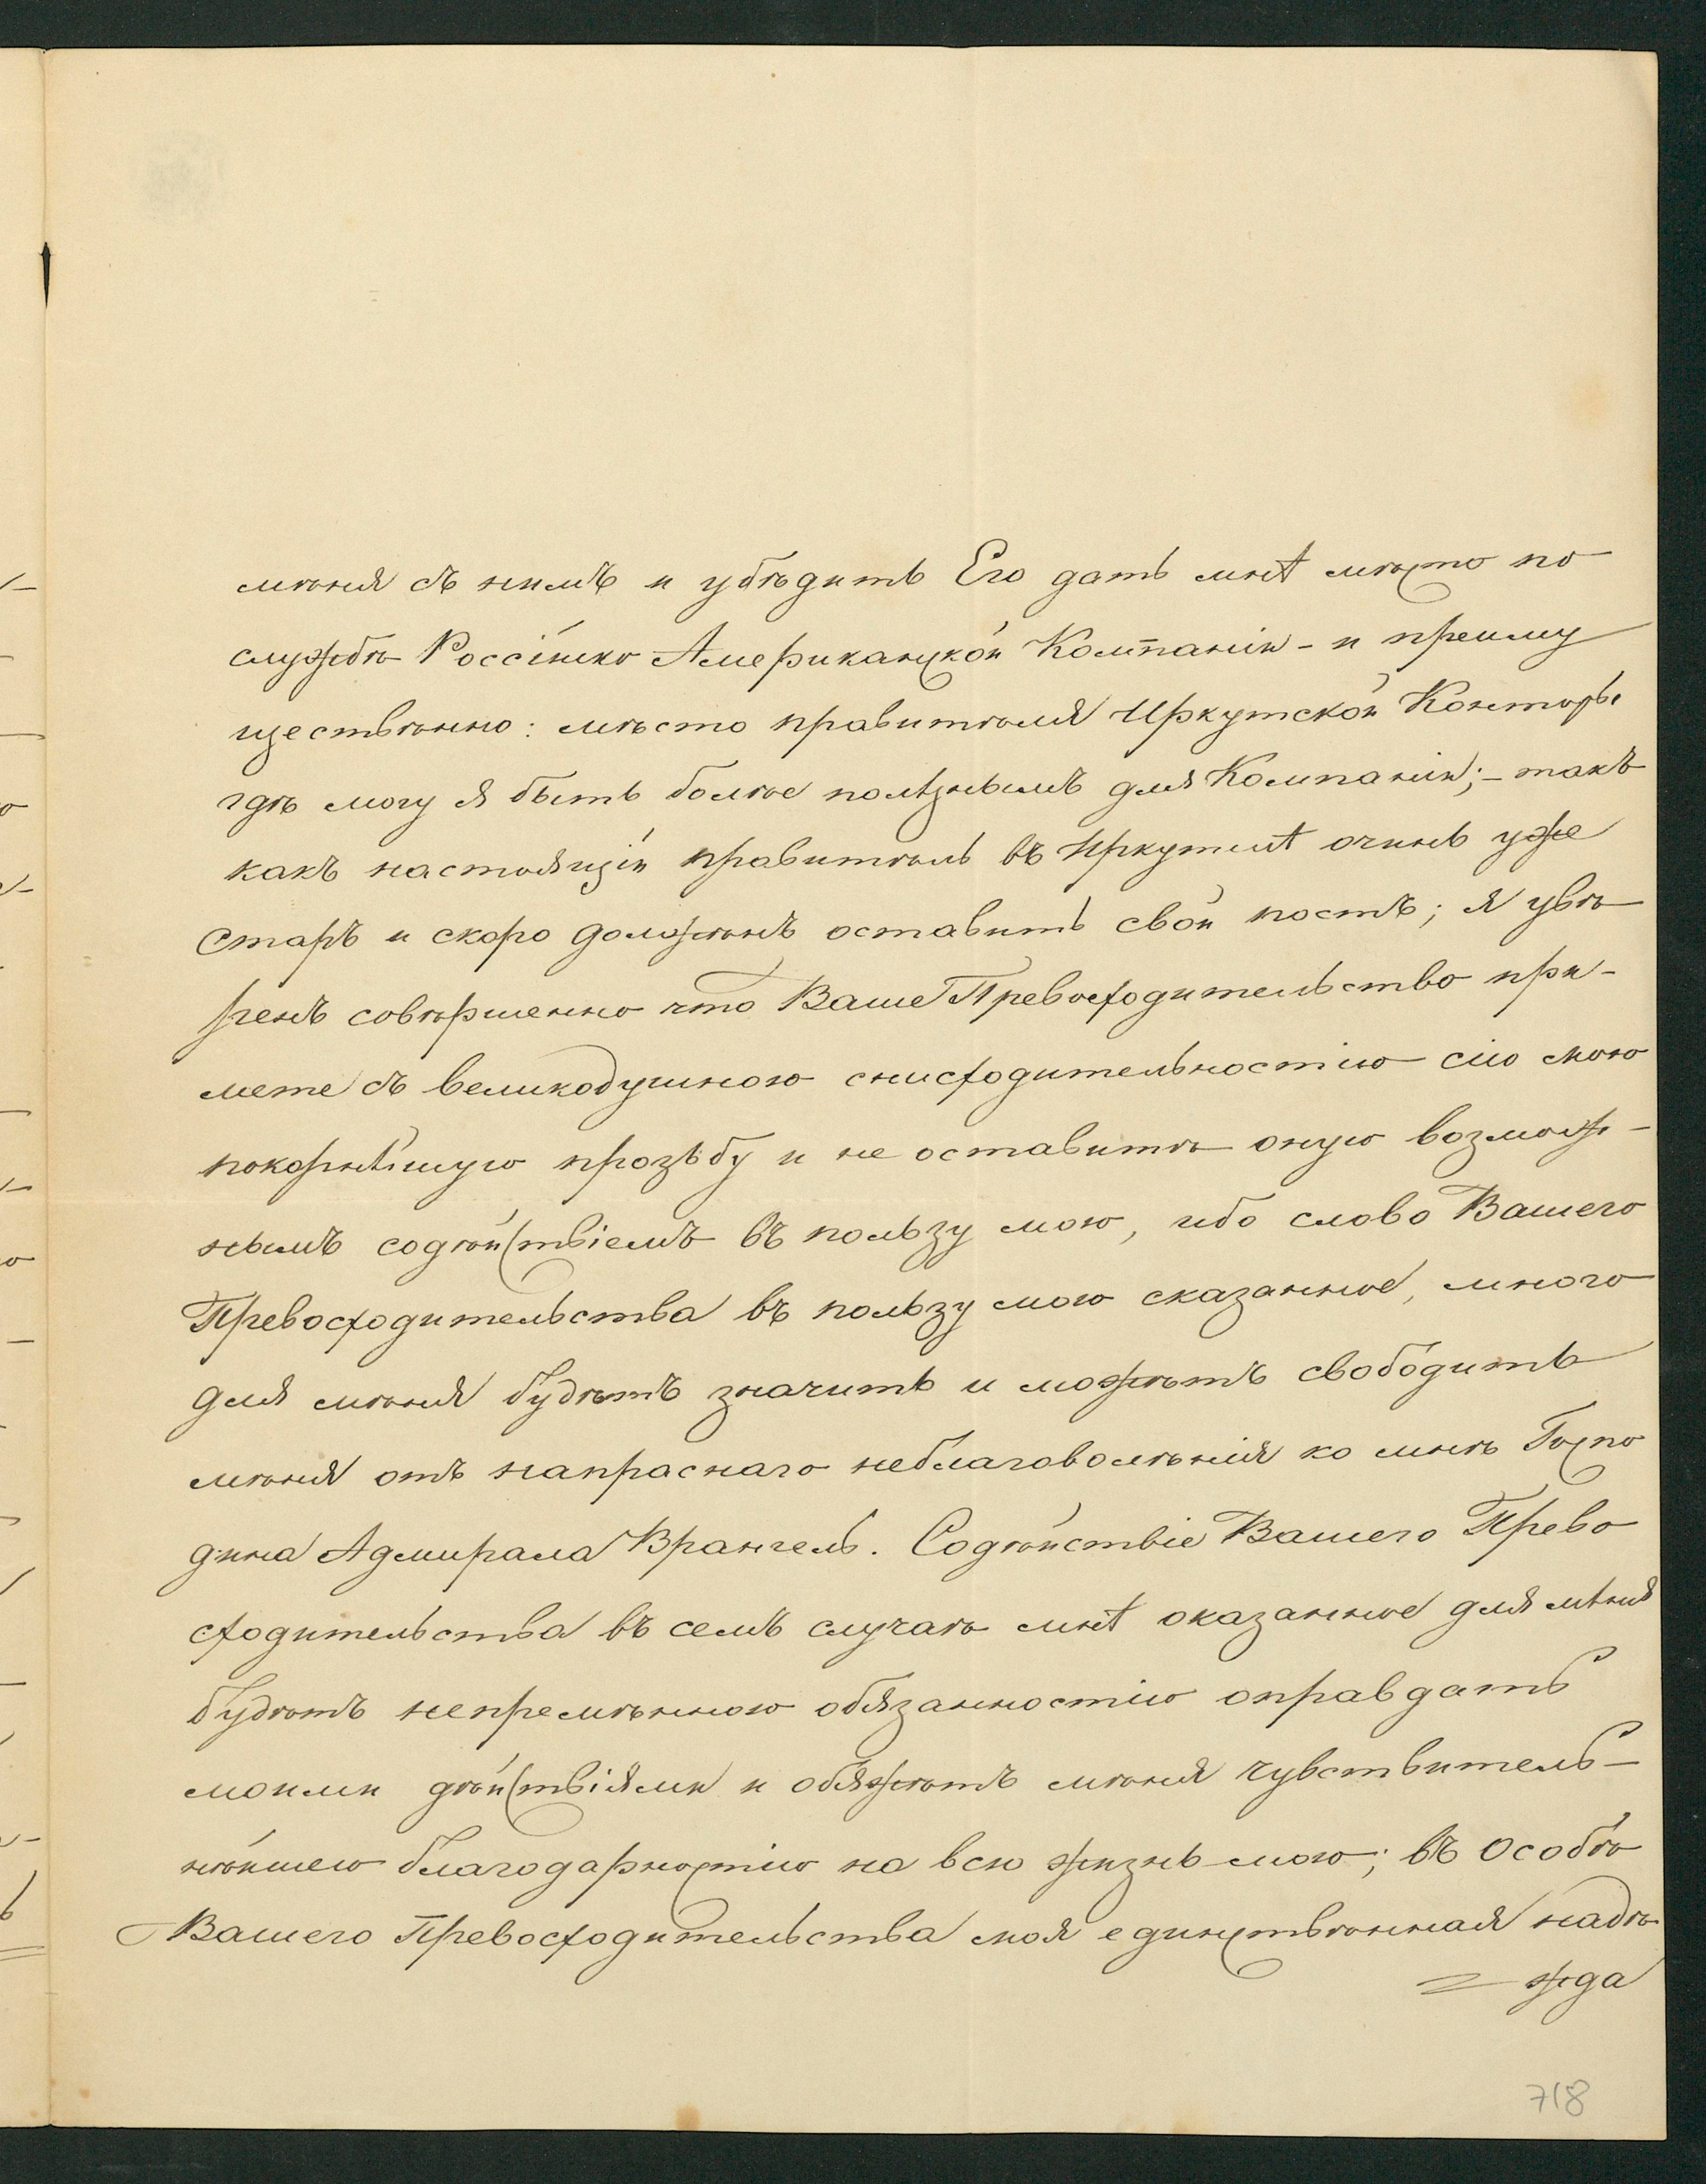 мѣня съ нимъ и убѣдить Его дать мнѣ мѣсто по
службѣ Россійско Американской Компаніи - и преиму
щественно: мѣсто правителя Иркутской Конторы
гдѣ могу я быть болѣе полѣзнымъ для Компаніи; - такъ
какъ настоящій правитель въ Иркутскѣ очинь уже
старъ и скоро долженъ оставить свой постъ; я увѣ
ренъ совѣршенно что Ваше Превосходительство при-
мете съ великодушною снисходительностію сію мою
покорнѣйшую прозьбу и не оставите оную возмож-
нымъ содѣйствіемъ въ пользу мою, ибо слово Вашего
Превосходительства въ пользу мою сказанное, много
для мѣня будѣтъ значить и можѣтъ свободить
мѣня отъ напраснаго неблаговолѣнія ко мнѣ Госпо
дина Адмирала Врангель. Содѣйствіе Вашего Прево
сходительства въ семъ случаѣ мнѣ оказанное для мѣня
будѣтъ непремѣнною обязанностію оправдать
моими дѣйствіями и обяжѣтъ мѣня чувствитель-
нѣйшею благодарностію на всю жизнь мою; въ Особѣ
Вашего Превосходительства моя единствѣнная надѣ
= жда
718